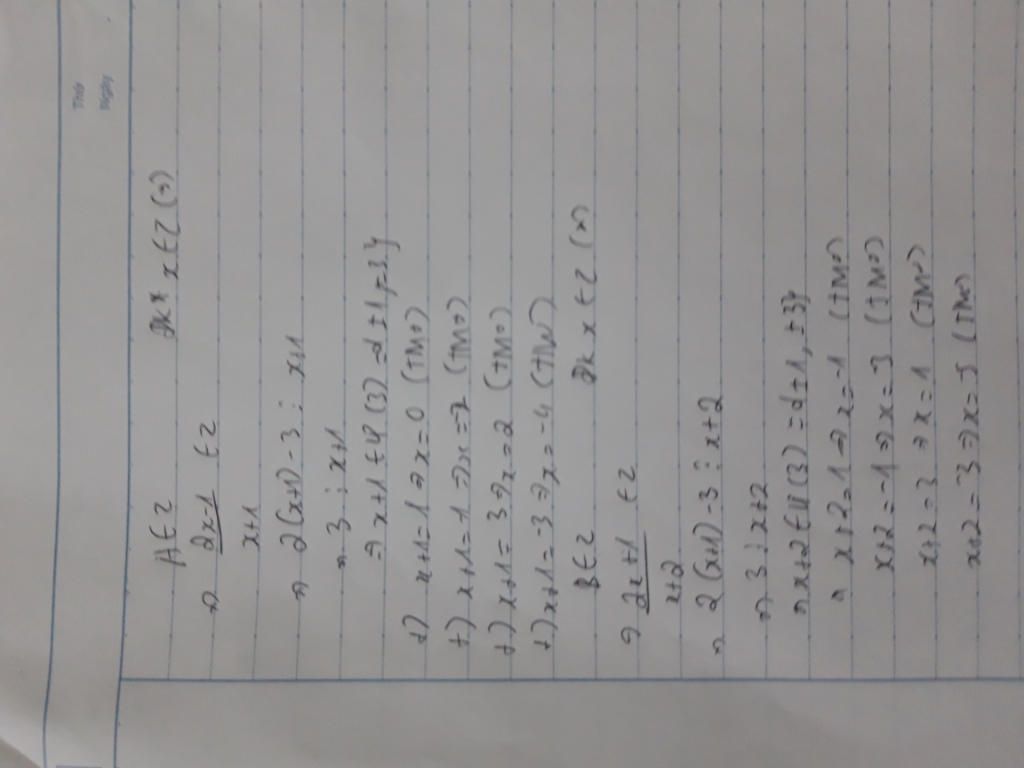 Thứ
Ngày
A ∈ Z đk x x ∈ Z (*)
=> 2x-1 ∈ Z
x+1
=> 2(x+1) - 3 ⋮ x+1
=> 3 ⋮ x+1
=> x+1 ∈ Ư(3) = {±1, ±3}
+) x+1 = 1 => x = 0 (TMĐ)
+) x+1 = -1 => x = -2 (TMĐ)
+) x+1 = 3 => x = 2 (TMĐ)
+) x+1 = -3 => x = -4 (TMĐ)
B ∈ Z đk x ∈ Z (*)
=> 2x+1 ∈ Z
x+2
=> 2(x+1) - 3 ⋮ x+2
=> 3 ⋮ x+2
=> x+2 ∈ Ư(3) = {±1, ±3}
=> x+2 = 1 => x = -1 (TMĐ)
x+2 = -1 => x = 3 (TMĐ)
x+2 = 3 => x = 1 (TMĐ)
x+2 = -3 => x = 5 (TMĐ)